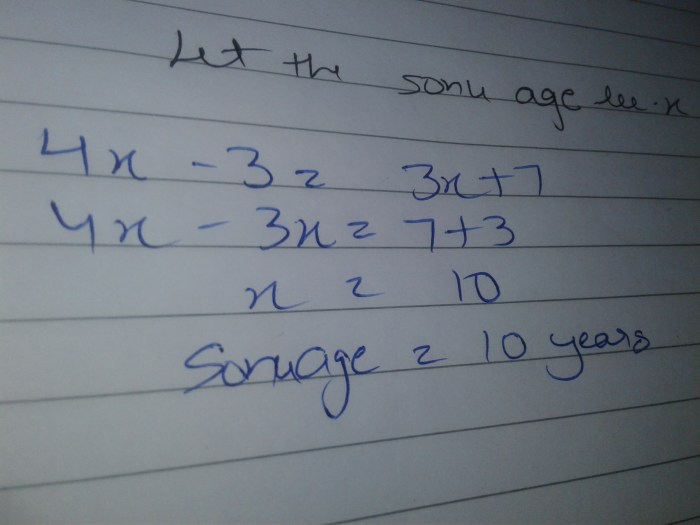 Let the sonu age be x
4x - 3 = 3x+7
4x - 3x = 7+3
x = 10
Sonu age = 10 years